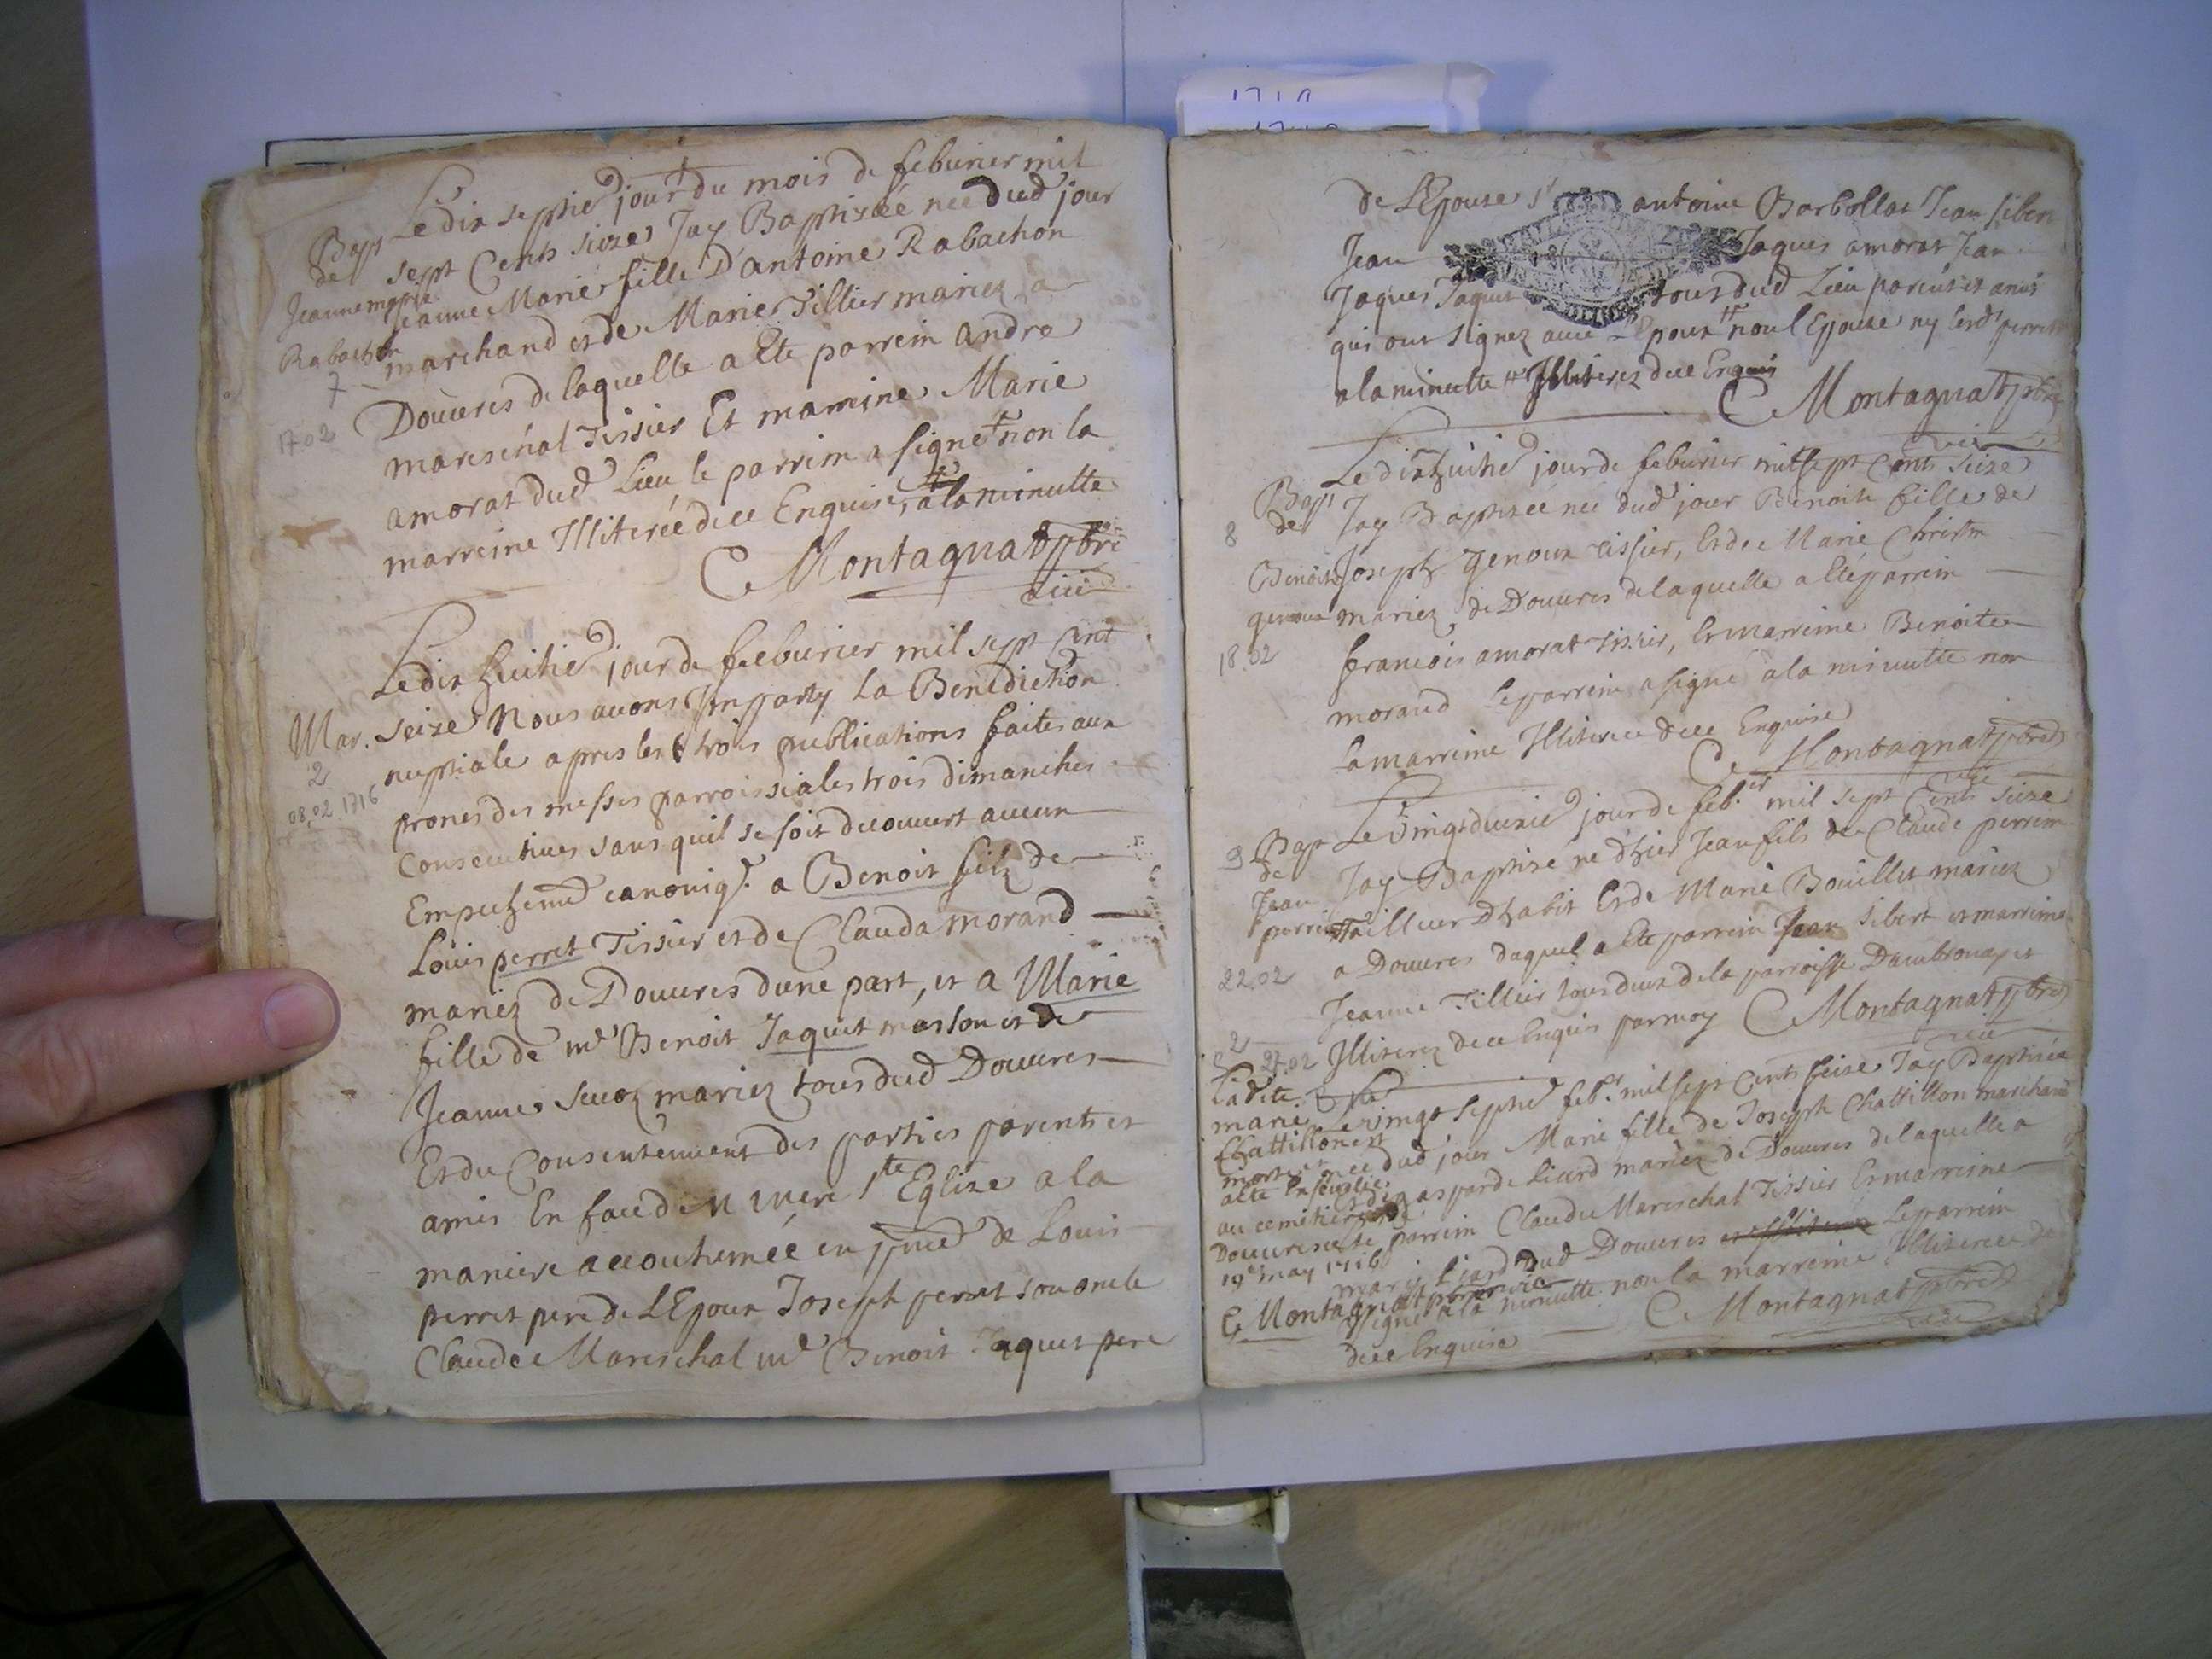 Le dix septie jour du mois de feburier mil
Bapt
de
Jeanne marie
Rabachon
7
17.02
sept Cents seize Jay Baptizée née dud jour
Jeanne Marie fille D'antoine Rabachon
marchand et de Marie Tillier mariez a
Douures de laquelle a Ete parrein andre
mareschal Tissier Et marreine Marie
amorat dud Lieu le parrein a signé non la
marreine Illiterée de ce Enquise, a la minutte
C Montagnat pbre
vic
Le dix huitie jour de feburier mil sept Cent
Mar.
2
08.02.1716
seize Nous auons Imparty la Benediction
nuptiale apres les trois publications faites aux
prones des messes parroissiales trois dimanches
Consecutiues sans quil se soit decouuert aucun
Empechemt canoniq. a Benoit filz de
Louis perret Tissier et de Clauda morand
mariez de Douures dune part, et a Marie
fille de me Benoit Jaquet masson et de
Jeanne Sucoz mariez tous dud Douures
Et du Consentement des parties parents et
amis En face de N mere Ste Eglize a la
maniere accoutumée en pnce de Louis
perret pere de LEpoux Joseph perret son oncle
Claude Mareschal me Benoit Jaquet pere
1718
de LEpouse Sr antoine Barbollat Jean sibert
Jean Jaques amorat Jean
Jaques Jaquet tous dud Lieu parents et amis
qui ont signez auec LEpoux non lEpouse ny lesd perret
a la minutte Illiterez de ce Enquis
C Montagnat pbre
vic
Le dix huitie jour de feburier mil sept Cents seize
Bapt
de
8
Benoite
genoux
18.02
Jay Baptizée née dud jour Benoite fille de
Joseph genoux tissier, Et de Marie Christin
mariez, de Douures de laquelle a Eté parrein
francois amorat tissier, Et marreine Benoite
morand le parrein a signé a la minutte non
la marreine Illiterée de ce Enquise
C Montagnat pbre
vic
Le Vingt deuxie jour de feb.er mil sept Cents seize
9 Bapt
de
Jean
perrein
22.02
Jay Baptisé né d'hier Jean fils de Claude perrein
Tailleur Dhabit Et de Marie Bouillet mariez
a Douures duquel a Ete parrein Jean sibert et marreine
Jeanne Tillier tous deux de la parroisse Dambronay et
Illiterez de ce Enquis par moy C Montagnat pbre
vic
2
27.02
La dite
marie
Chattillon est
morte et
a Ete Enseuelie
au cemitiere de
Douures le
19e may 1716
C Montagnat pbre vic
Le vingt septie feb.er mil sept Cents seize Jay Baptizée
née dud jour Marie fille de Joseph Chattillon marchand
et de gasparde Liard mariez de Douures de laquelle a
Ete parrein Claude Mareschal Tissier Et marreine
marie Liard dud Douures et Illiterez Le parrein
signé a la minutte non la marreine Illiterée de
de ce Enquise
C Montagnat pbre
vic